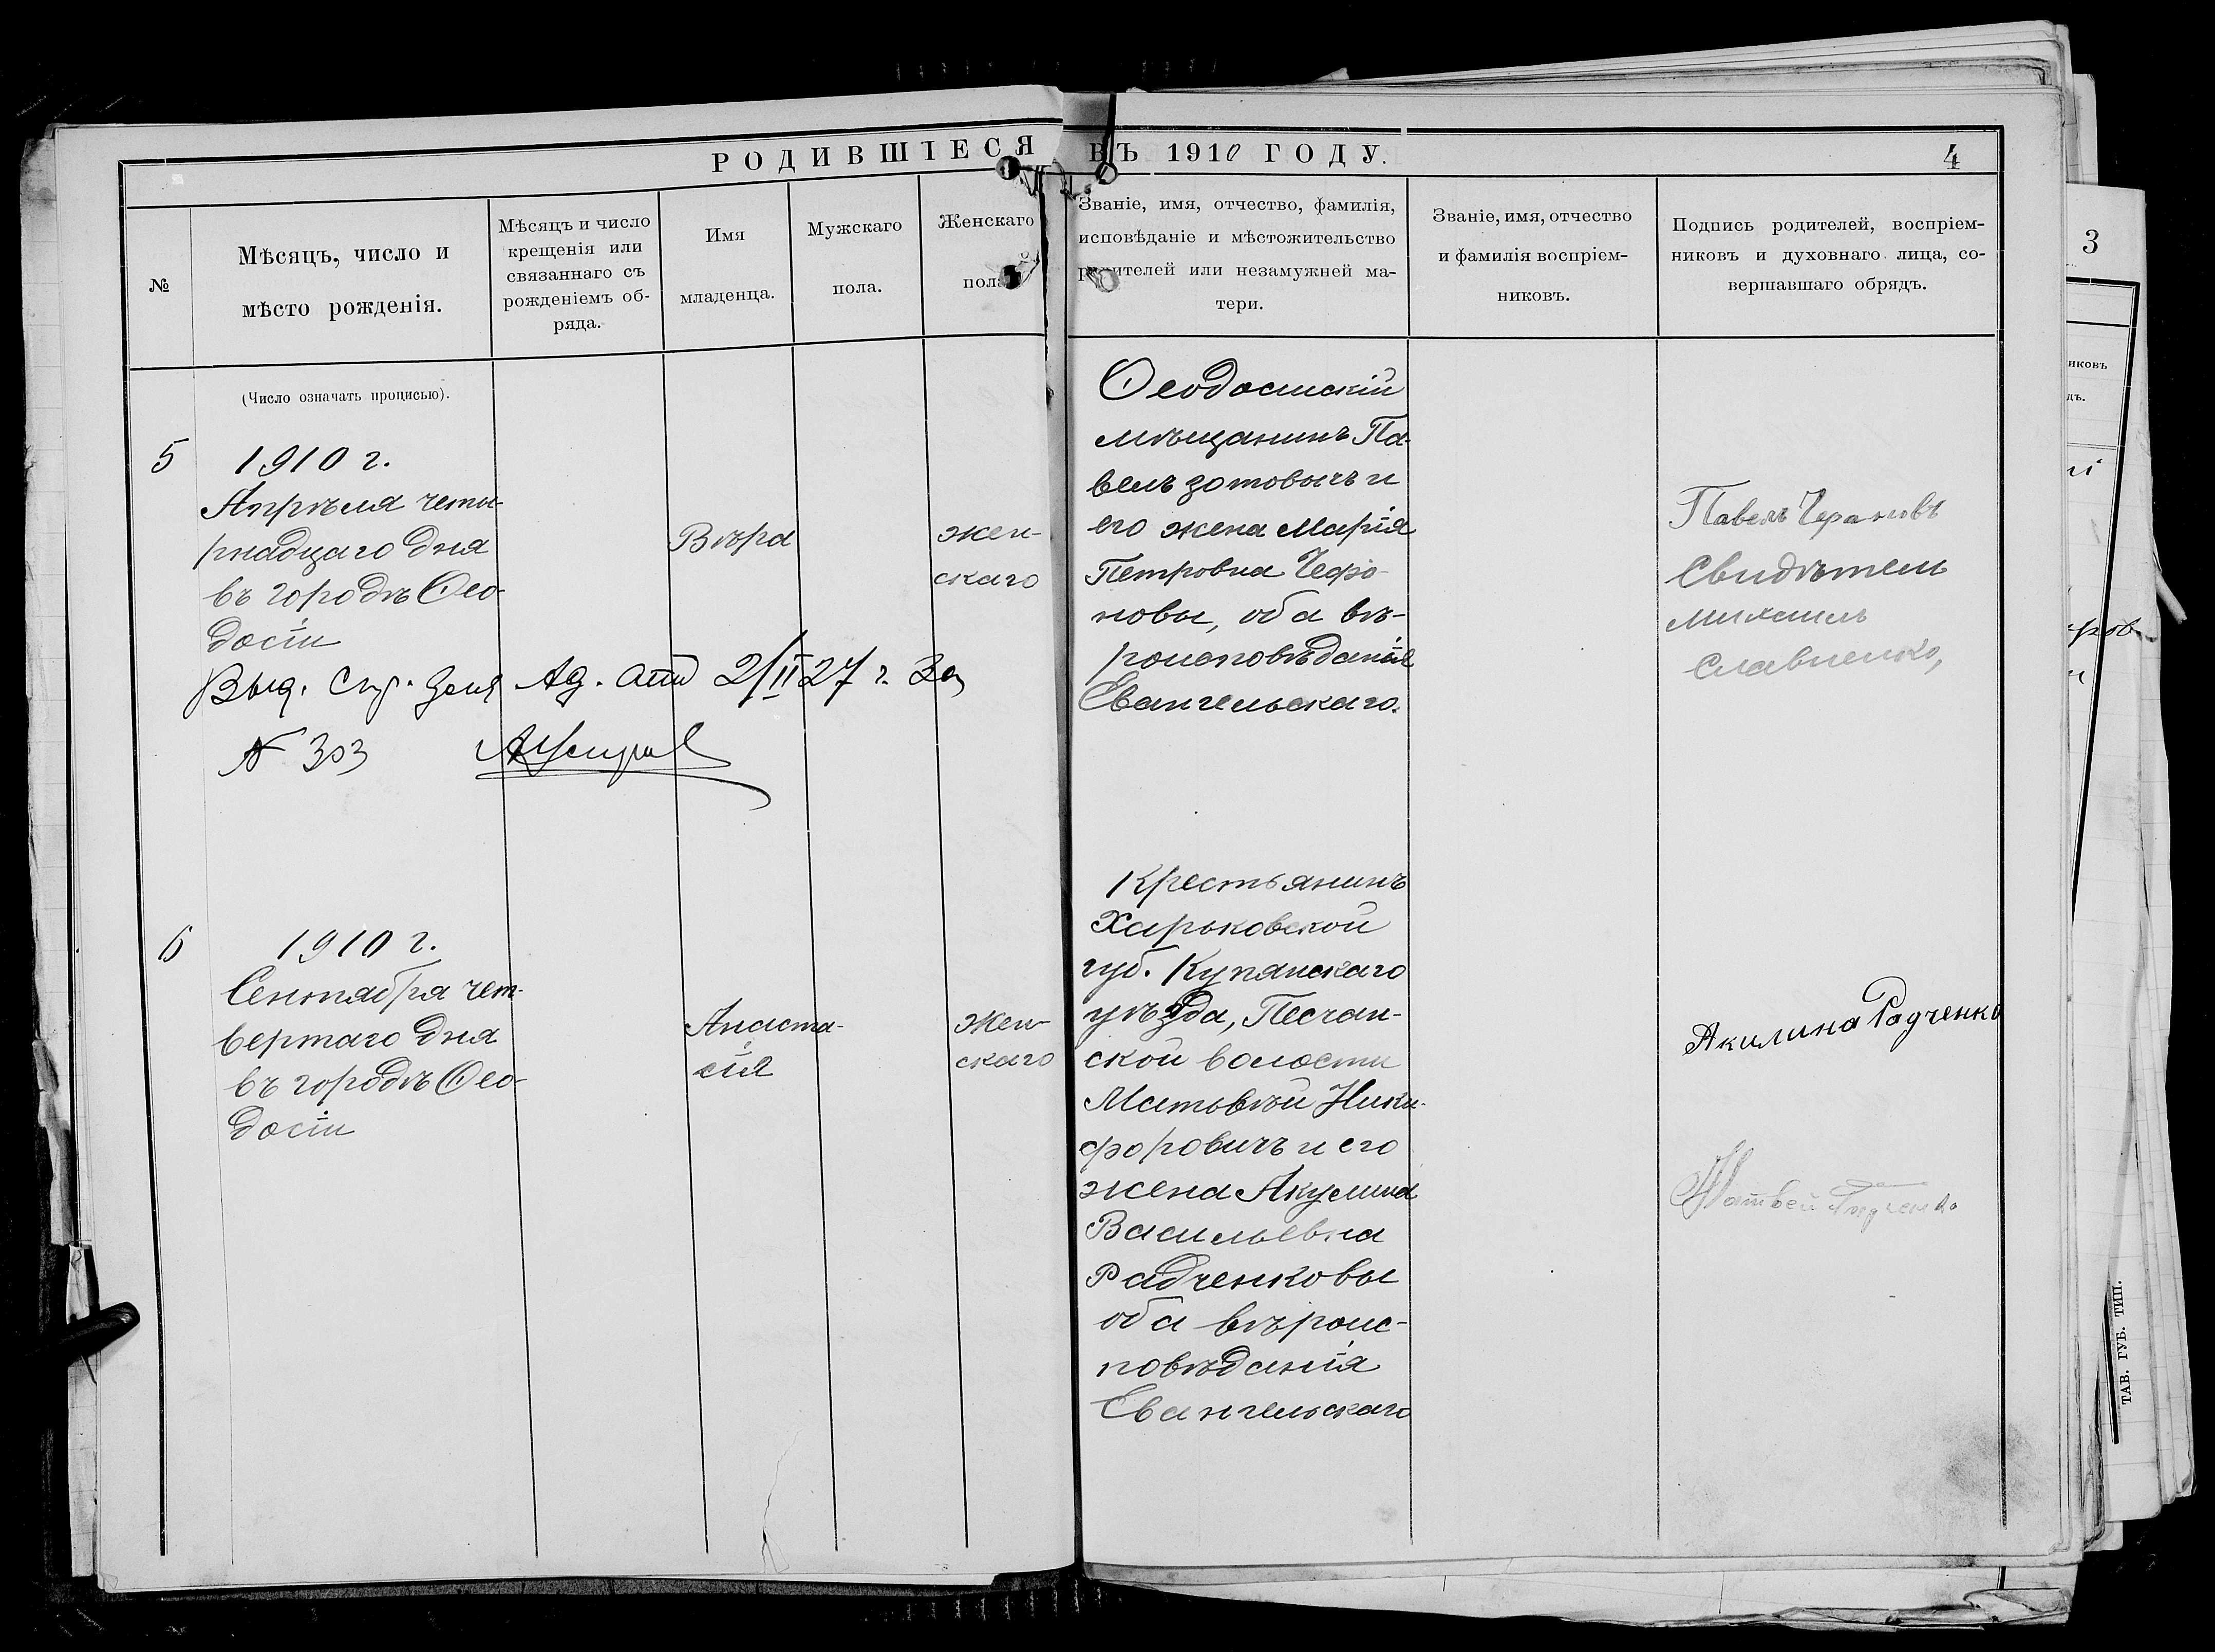 РОДИВШІЕСЯ ВЪ 1910 ГОДУ.
4
№
Мѣсяцъ, число и
мѣсто рожденія.
Мѣсяцъ и число
крещенія или
связаннаго съ
рожденіемъ об-
ряда.
Имя
младенца.
Мужскаго
пола.
Женскаго
пола
Званіе, имя, отчество, фамилія,
исповѣданіе и мѣстожительство
родителей или незамужней ма-
тери.
Званіе, имя, отчество
и фамилія воспріем-
никовъ.
Подпись родителей, воспріем-
никовъ и духовнаго лица, со-
вершавшаго обрядъ.
(Число означать прописью).
5
1910 г.
Апрѣля четы-
рнадцаго дня
въ городѣ Ѳео-
досіи
Вѣра
жен-
скаго
Ѳеодосискій
мѣщанинъ Па-
велъ зотовичъ и
его жена Марія
Петровна Чефо-
новы, оба вѣ-
роисповѣданія
Евангельскаго.
Павелъ
Свидѣтель
Михаилъ
Славненко,
Выд. Спр. для 2/II 27 г. За
№ 303
6
1910 г.
Сентября чет-
вертаго дня
въ городѣ Ѳео-
досіи
Анаста-
сія
жен-
скаго
Крестьянинъ
Харьковской
губ. Купянскаго
уѣзда, Песчан-
ской волости
Матьвѣй Ники-
форовичъ и его
жена Акулина
Васильевна
Радченковы
оба вѣроис-
повѣданія
Евангельскаго
Акилина Радченко
Матвей Радченко
3
иковъ
дъ.
ТАВ. ГУБ. ТИП.